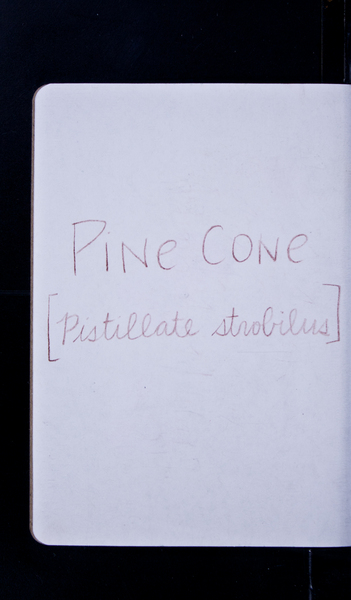 Pine Cone
[Pistillate strobilus]